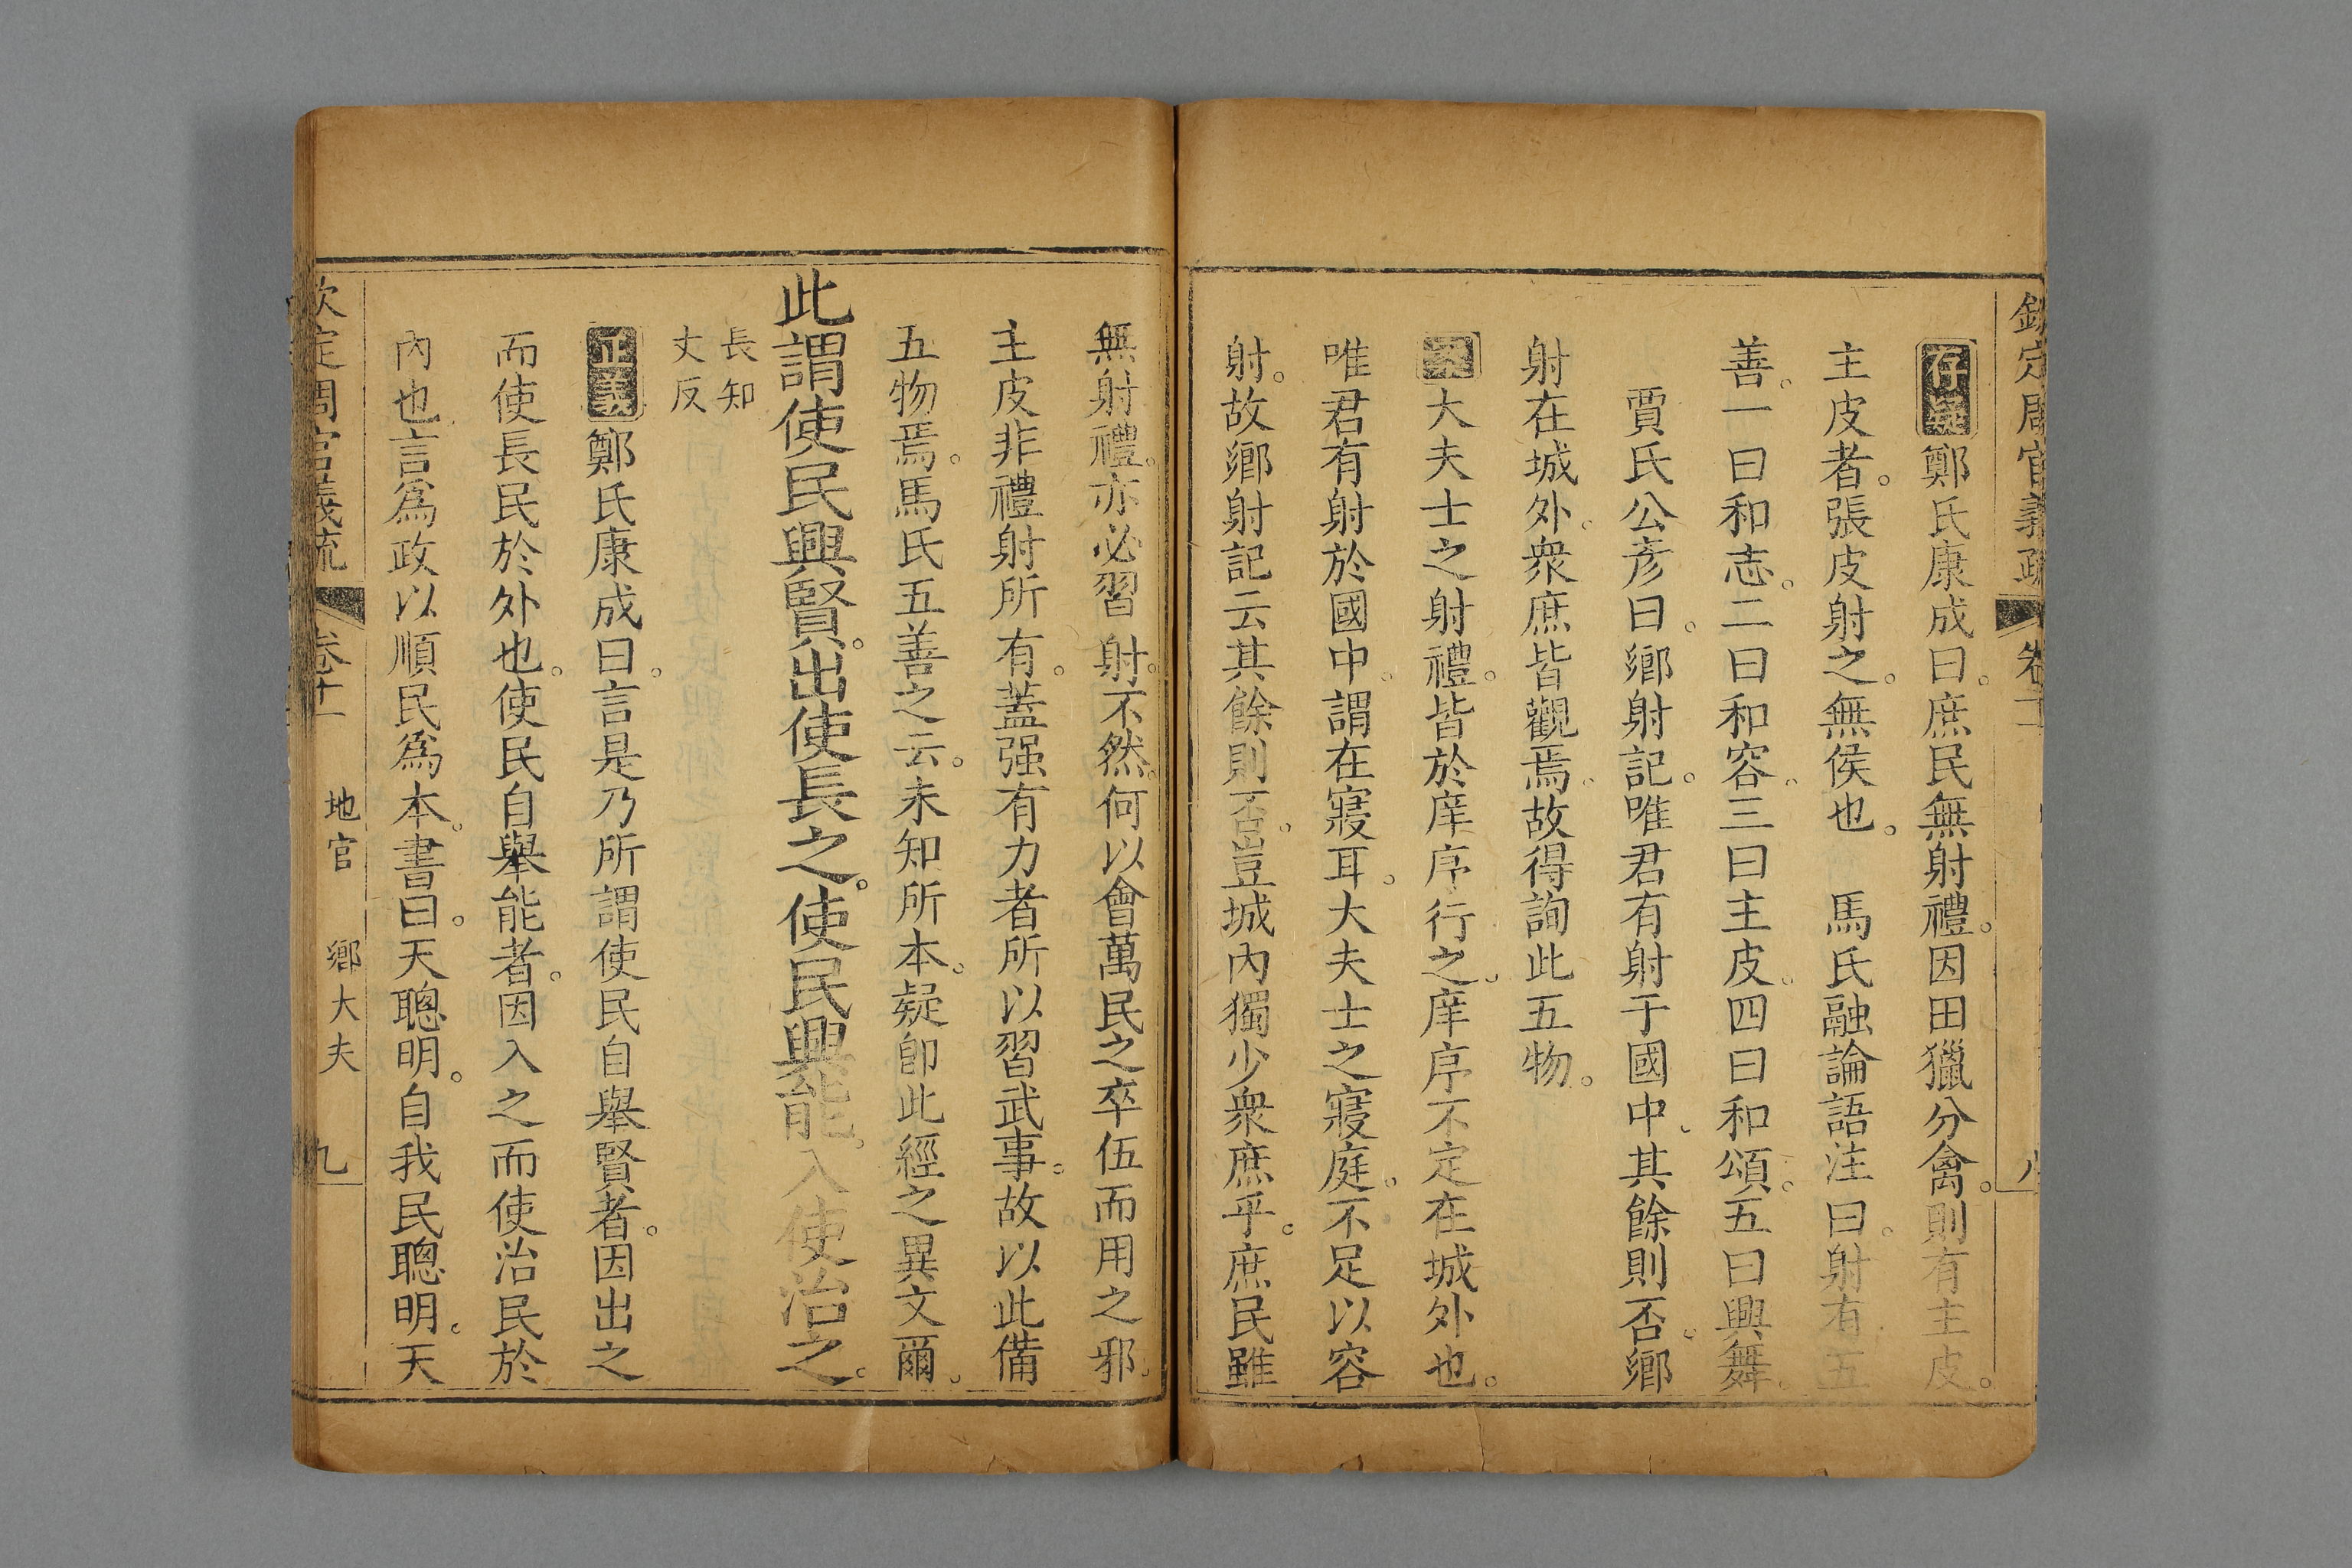 欽定周官義疏 卷十一 八
存疑鄭氏康成曰。庶民無射禮。因田獵分禽。則有主皮。
主皮者。張皮射之。無侯也。 馬氏融論語注曰。射有五
善。一曰和志。二曰和容。三曰主皮。四曰和頌。五曰興舞。
賈氏公彦曰。鄉射記。唯君有射于國中。其餘則否。鄉
射在城外。衆庶皆觀焉。故得詢此五物。
案大夫士之射禮。皆於庠序行之。庠序不定在城外也。
唯君有射於國中。謂在寢耳。大夫士之寢庭。不足以容
射。故鄉射記云其餘則否。豈城內獨少衆庶乎。庶民雖
無射禮。亦必習射。不然。何以會萬民之卒伍而用之邪。
主皮非禮射所有。蓋强有力者所以習武事。故以此備
五物焉。馬氏五善之云。未知所本。疑卽此經之異文爾。
此謂使民興賢。出使長之。使民興能。入使治之。
長知
丈反
正義鄭氏康成曰。言是乃所謂使民自舉賢者。因出之
而使長民於外也。使民自舉能者。因入之而使治民於
內也言爲政以順民爲本。書曰。天聰明。自我民聰明。天
欽定周官義疏 卷十一 地官 鄉大夫 九